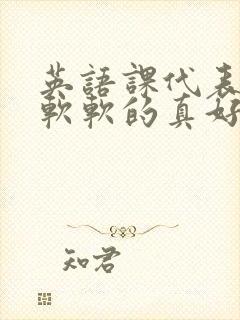 英語課代表
軟軟的真好
知君